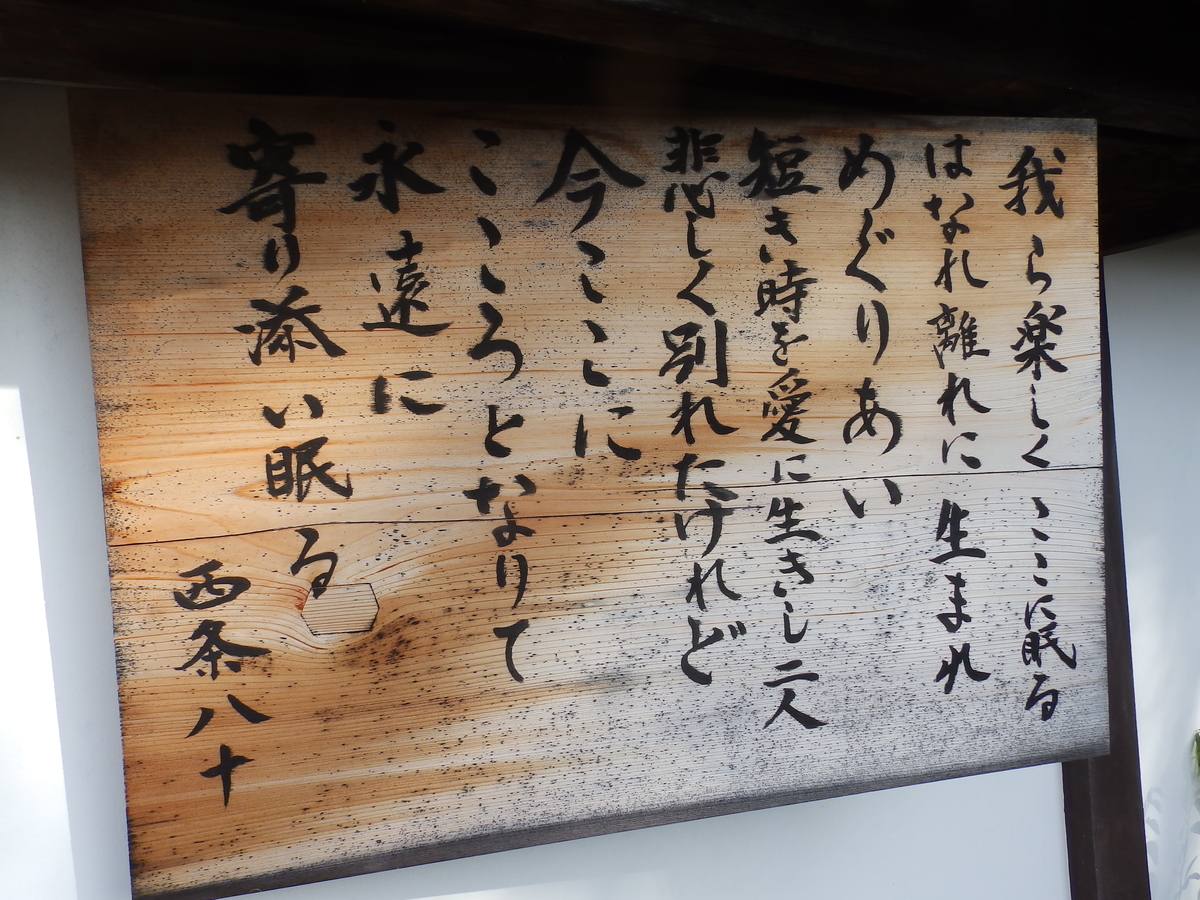 我ら楽しく ここに眠る
はなれ離れに 生まれ
めぐりあい
短き時を愛に生きし二人
悲しく別れたけれど
今ここに
こころとなりて
永遠に
寄り添い眠る
西条八十